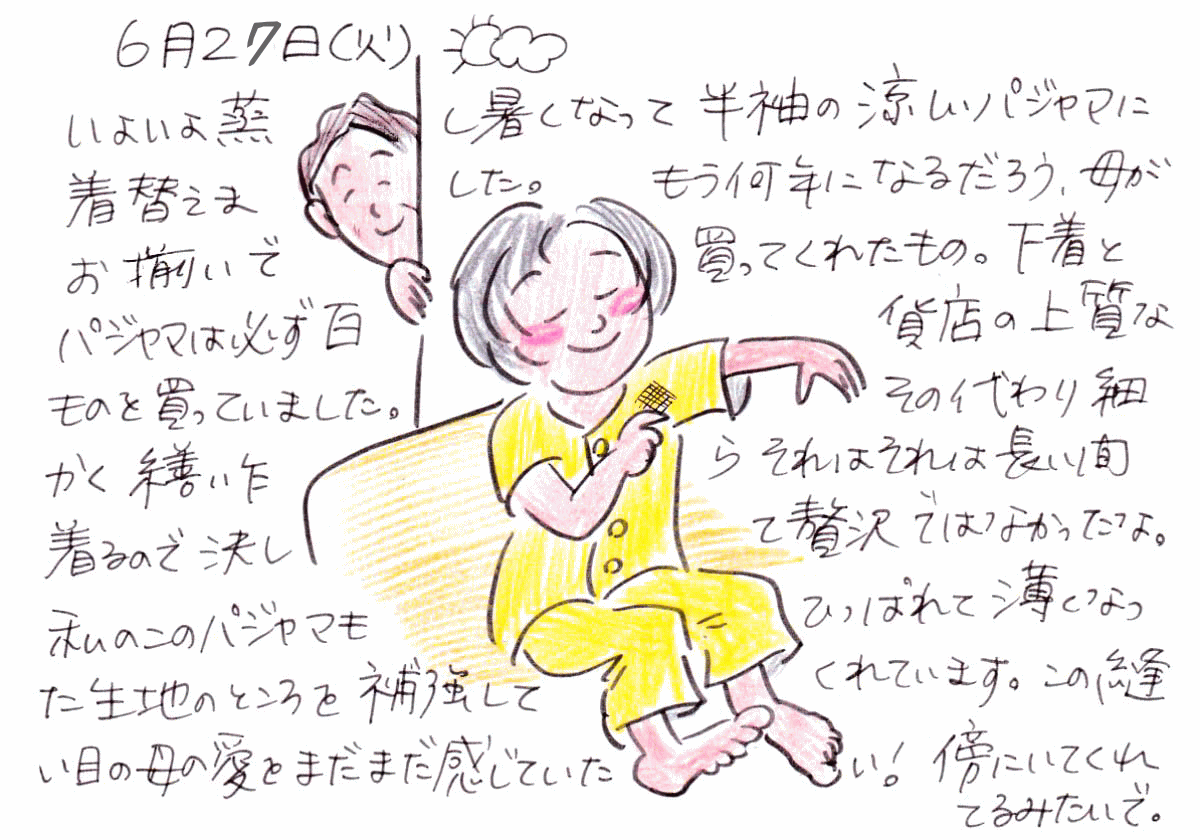 6月27日(火)
いよいよ蒸し暑くなって 半袖の涼しいパジャマに
着替えました。 もう何年になるだろう、母が
お揃いで買ってくれたもの。下着と
パジャマは必ず百貨店の上質な
ものを買っていました。その代わり細
かく繕い乍らそれはそれは長い間
着るので決して贅沢ではなかったな。
私のこのパジャマもひっぱれて薄くなっ
た生地のところを補強してくれています。この縫
い目の母の愛をまだまだ感じていたい!傍にいてくれ
てるみたいで。